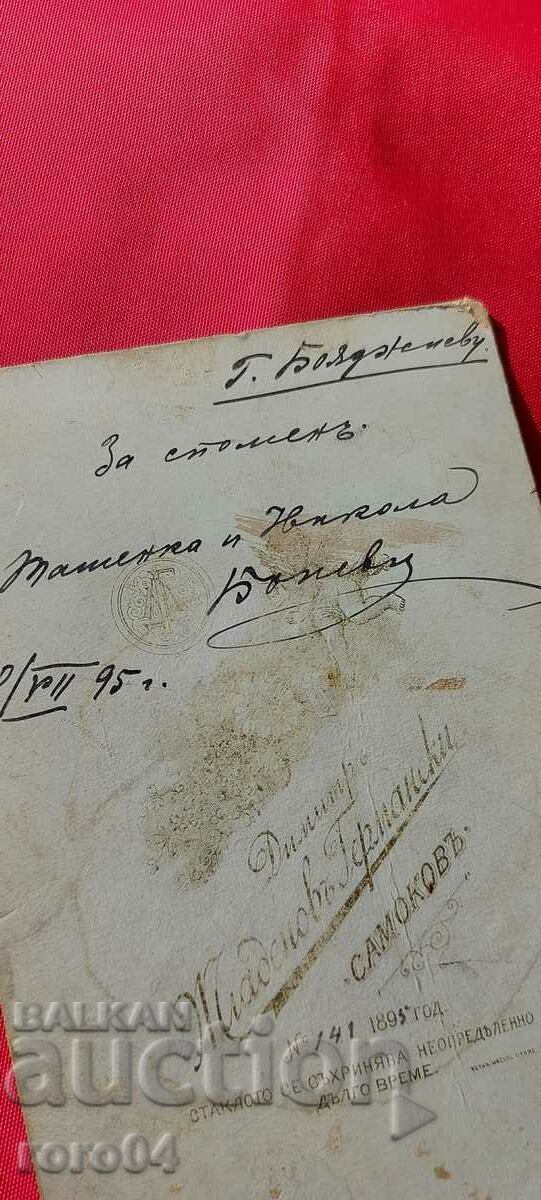 Г. Бояджиеву.
За споменъ.
Ташенка и Никола
Боневи
/VII 95 г.
Димитръ
Младеновъ Германски
САМОКОВЪ.
№ 141 1895 ГОД.
СТАКЛОТО СЕ СЪХРИНЯВА НЕОПРЕДѢЛЕННО
ДЪЛГО ВРЕМЕ.
БАЛКАН
auction
roro04